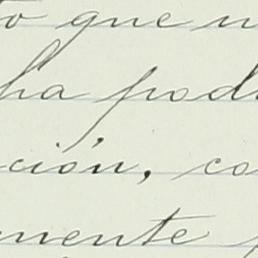 to que n
ha pod
ción, co
mente